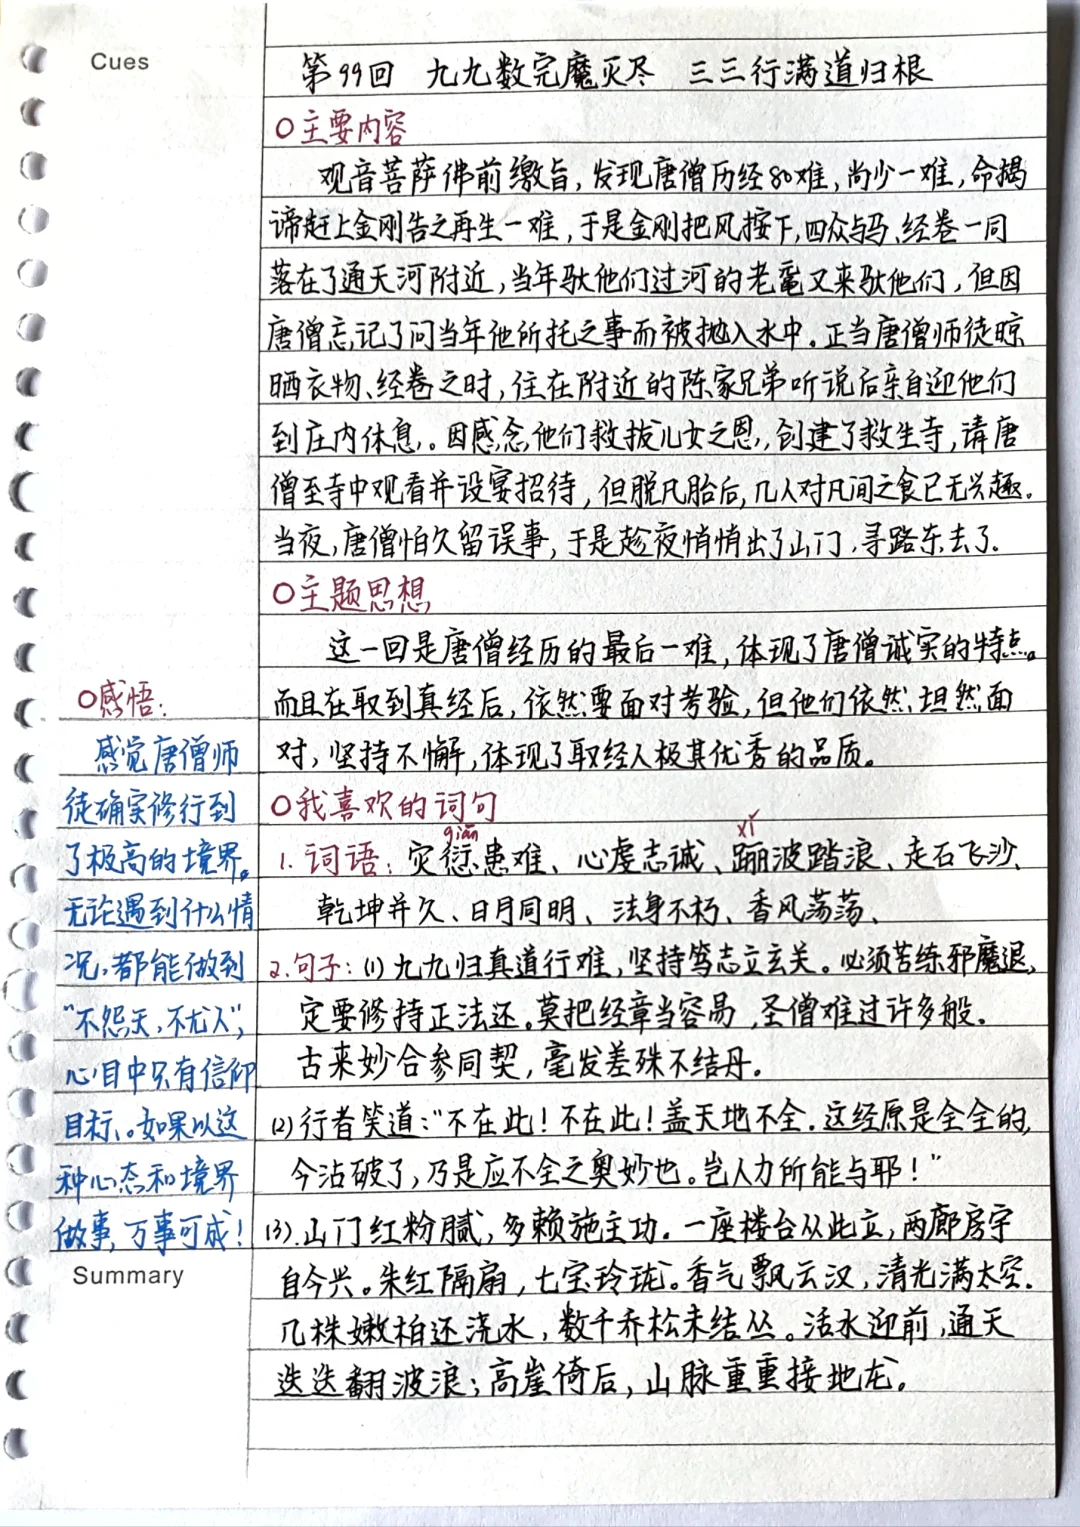 Cues
第99回 九九数完魔灭尽 三三行满道归根
○主要内容
观音菩萨佛前缴旨,发现唐僧历经80难,尚少一难,命揭
谛赶上金刚告之再生一难,于是金刚把风按下,四众与马、经卷一同
落在了通天河附近,当年驮他们过河的老鼋又来驮他们,但因
唐僧忘记了问当年他所托之事而被抛入水中。正当唐僧师徒晾
晒衣物、经卷之时,住在附近的陈家兄弟听说后亲自迎他们
到庄内休息。因感念他们救拔儿女之恩,创建了救生寺,请唐
僧至寺中观看并设宴招待,但脱凡胎后,几人对凡间之食已无兴趣。
当夜,唐僧怕久留误事,于是趁夜悄悄出了山门,寻路东去了.
○主题思想
这一回是唐僧经历的最后一难,体现了唐僧诚实的特点。
而且在取到真经后,依然要面对考验,但他们依然坦然面
对,坚持不懈,体现了取经人极其优秀的品质。
○我喜欢的词句
qiān
xǐ
1.词语:灾愆患难、心虔志诚、蹦波踏浪、走石飞沙、
乾坤并久、日月同明、法身不朽、香风荡荡、
2.句子:(1)九九归真道行难,坚持笃志立玄关。必须苦练邪魔退,
定要修持正法还。莫把经章当容易,圣僧难过许多般.
古来妙合参同契,毫发差殊不结丹。
(2)行者笑道:“不在此!不在此!盖天地不全.这经原是全全的,
今沾破了,乃是应不全之奥妙也。岂人力所能与耶!”
(3).山门红粉腻,多赖施主功。一座楼台从此立,两廊房宇
自今兴。朱红隔扇,七宝玲珑。香气飘云汉,清光满太空.
几株嫩柏还浇水,数千乔松未结丛。活水迎前,通天
迭迭翻波浪;高崖倚后,山脉重重接地龙。
○感悟:
感觉唐僧师
徒确实修行到
了极高的境界。
无论遇到什么情
况,都能做到
“不怨天,不尤人”,
心目中只有信仰
目标。如果以这
种心态和境界
做事,万事可成!
Summary